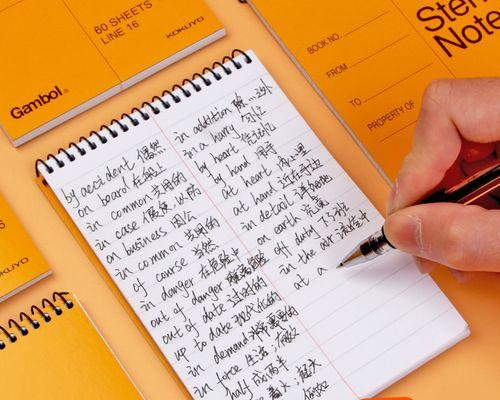 60 SHEETS
LINE 16
KOKUYO
Gambol®
Sten
Note
BOOK NO.
FROM
TO
PROPERTY OF
KOKUYO
by accident 偶然
on board 在船上
in common 共用的
in case 假如，以防
on business 因公
in common 共同的
of course 当然
in danger 在危险中
out of danger 脱离危险
out of date 过时的
up to date 现代化的
in demand 非常需要的
in force 生效
half 成两半
in addition 除…之外
in a hurry 匆忙
by heart
by hand 用手
at heart
at hand 近在手边
in detail 详细地
on earth 究竟
off duty 下班
in the air
at a